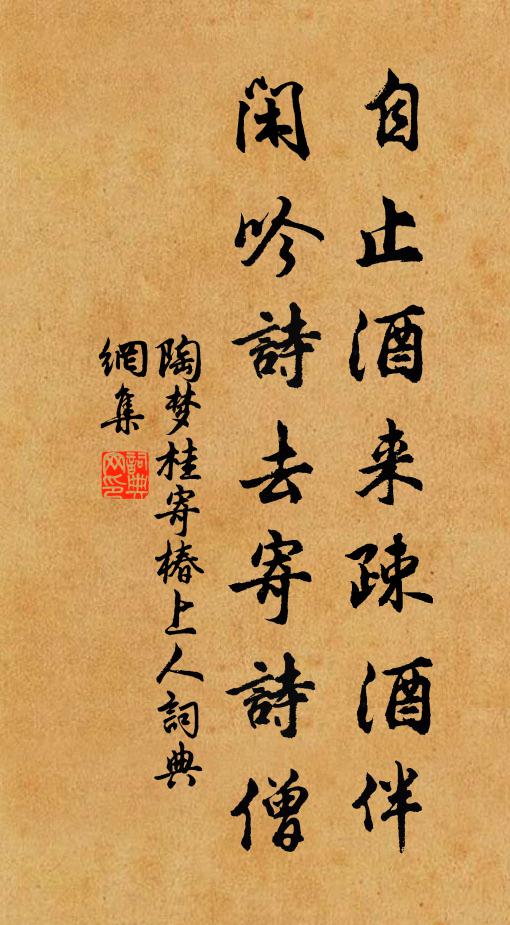 自止酒来疎酒伴
閑吟詩去寄詩僧
陶梦桂寄椿上人詞典
網集
詞典
网印